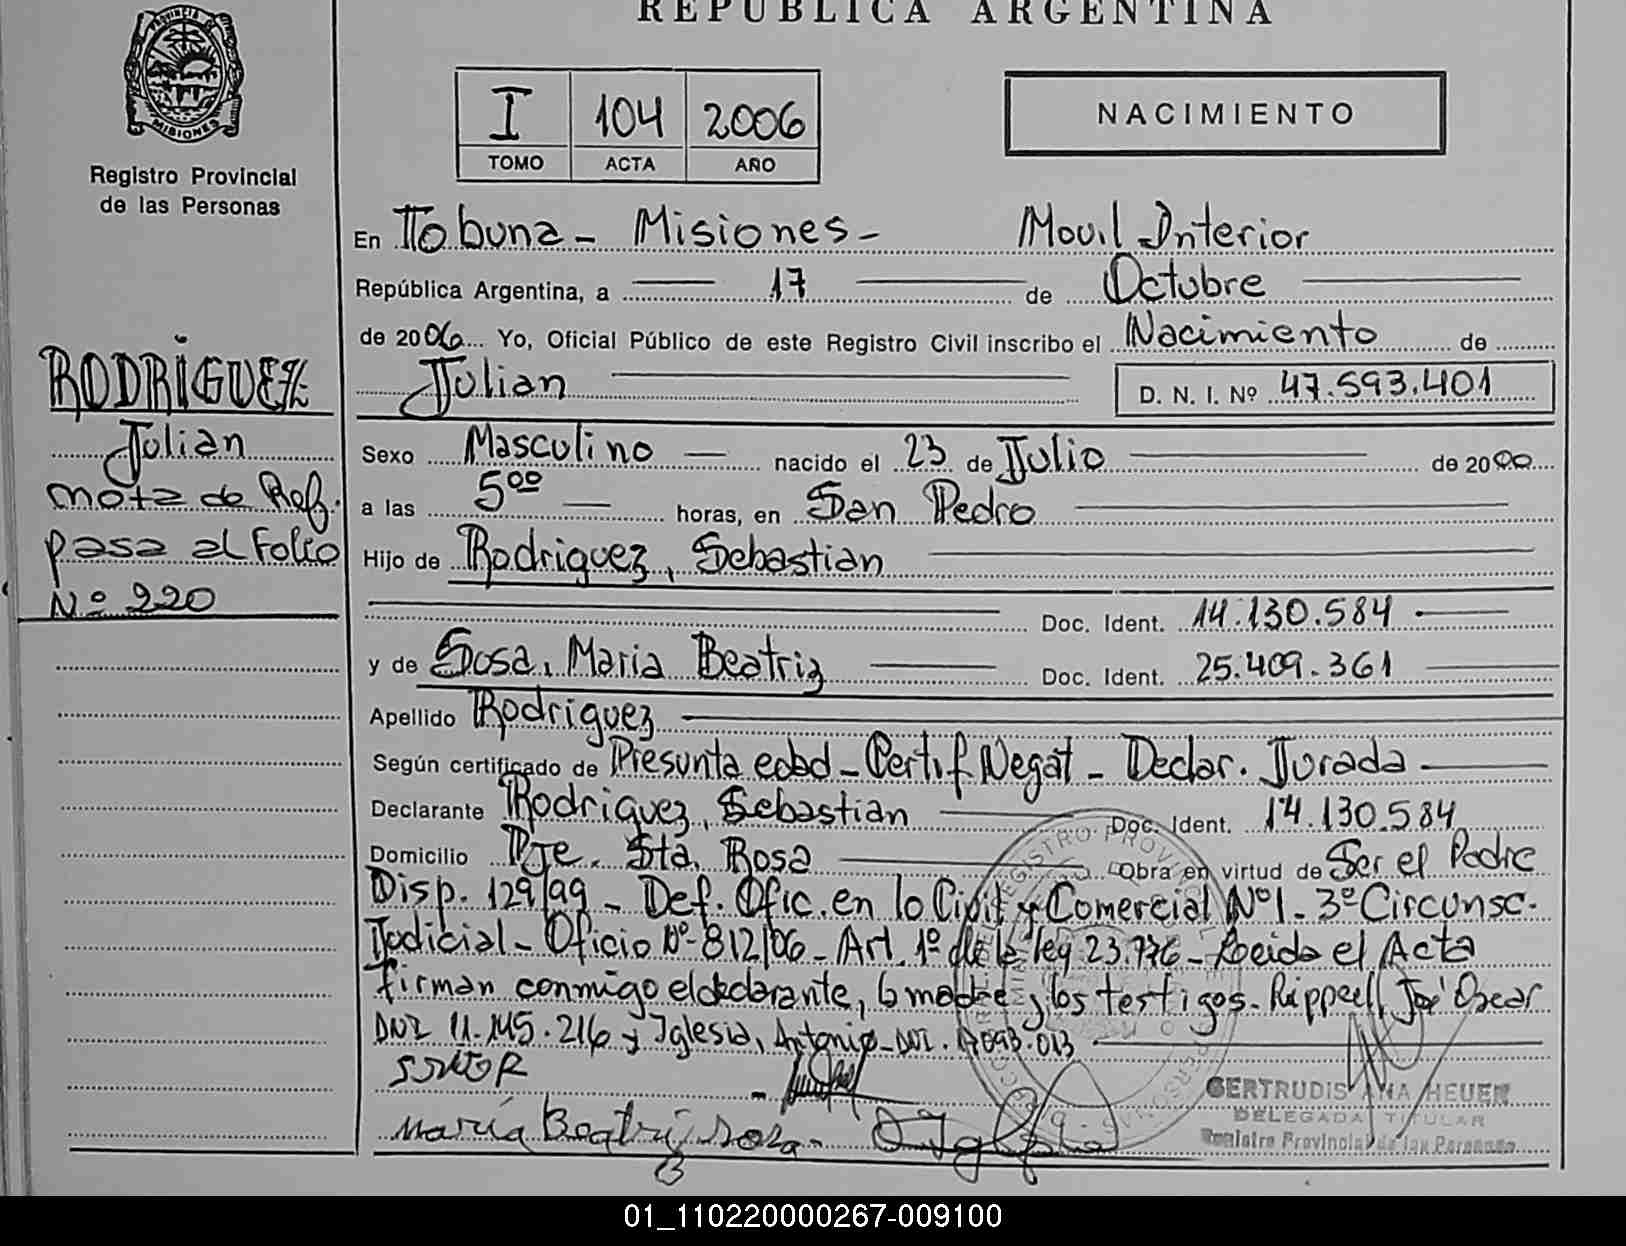 REPUBLICA ARGENTINA
PROVINCIA DE
MISIONES
Registro Provincial
de las Personas
I 104 2006
TOMO ACTA AÑO
NACIMIENTO
En Tobuna - Misiones - Movil Interior
República Argentina, a 17 de Octubre
de 2006 Yo, Oficial Público de este Registro Civil inscribo el Nacimiento de
Julian D. N. I. Nº 47.593.401
RODRIGUEZ
Julian
nota de Ref.
pasa al Folio
Nº 220
Sexo Masculino nacido el 23 de Julio de 2000
a las 5⁰⁰ horas, en San Pedro
Hijo de Rodriguez, Sebastian
Doc. Ident. 14.130.584
y de Sosa, Maria Beatriz Doc. Ident. 25.409.361
Apellido Rodriguez
Según certificado de Presunta edad - Certif Negat - Declar. Jurada
Declarante Rodriguez, Sebastian Doc. Ident. 14.130.584
Domicilio Pje. Sta. Rosa Obra en virtud de Ser el Padre
Disp. 129/99 - Def. Ofic. en lo Civil y Comercial Nº1 - 3º Circunsc.
Judicial - Oficio Nº 812/06 - Art. 1º de la ley 23.776 - Leida el Acta
firman conmigo el declarante, la madre y los testigos - José Oscar
DNI 11.145.216 y Iglesia, Antonio - DNI.
María Beatriz sosa
GERTRUDIS ANA HEUER
DELEGADA TITULAR
Registro Provincial de las Personas
01_110220000267-009100